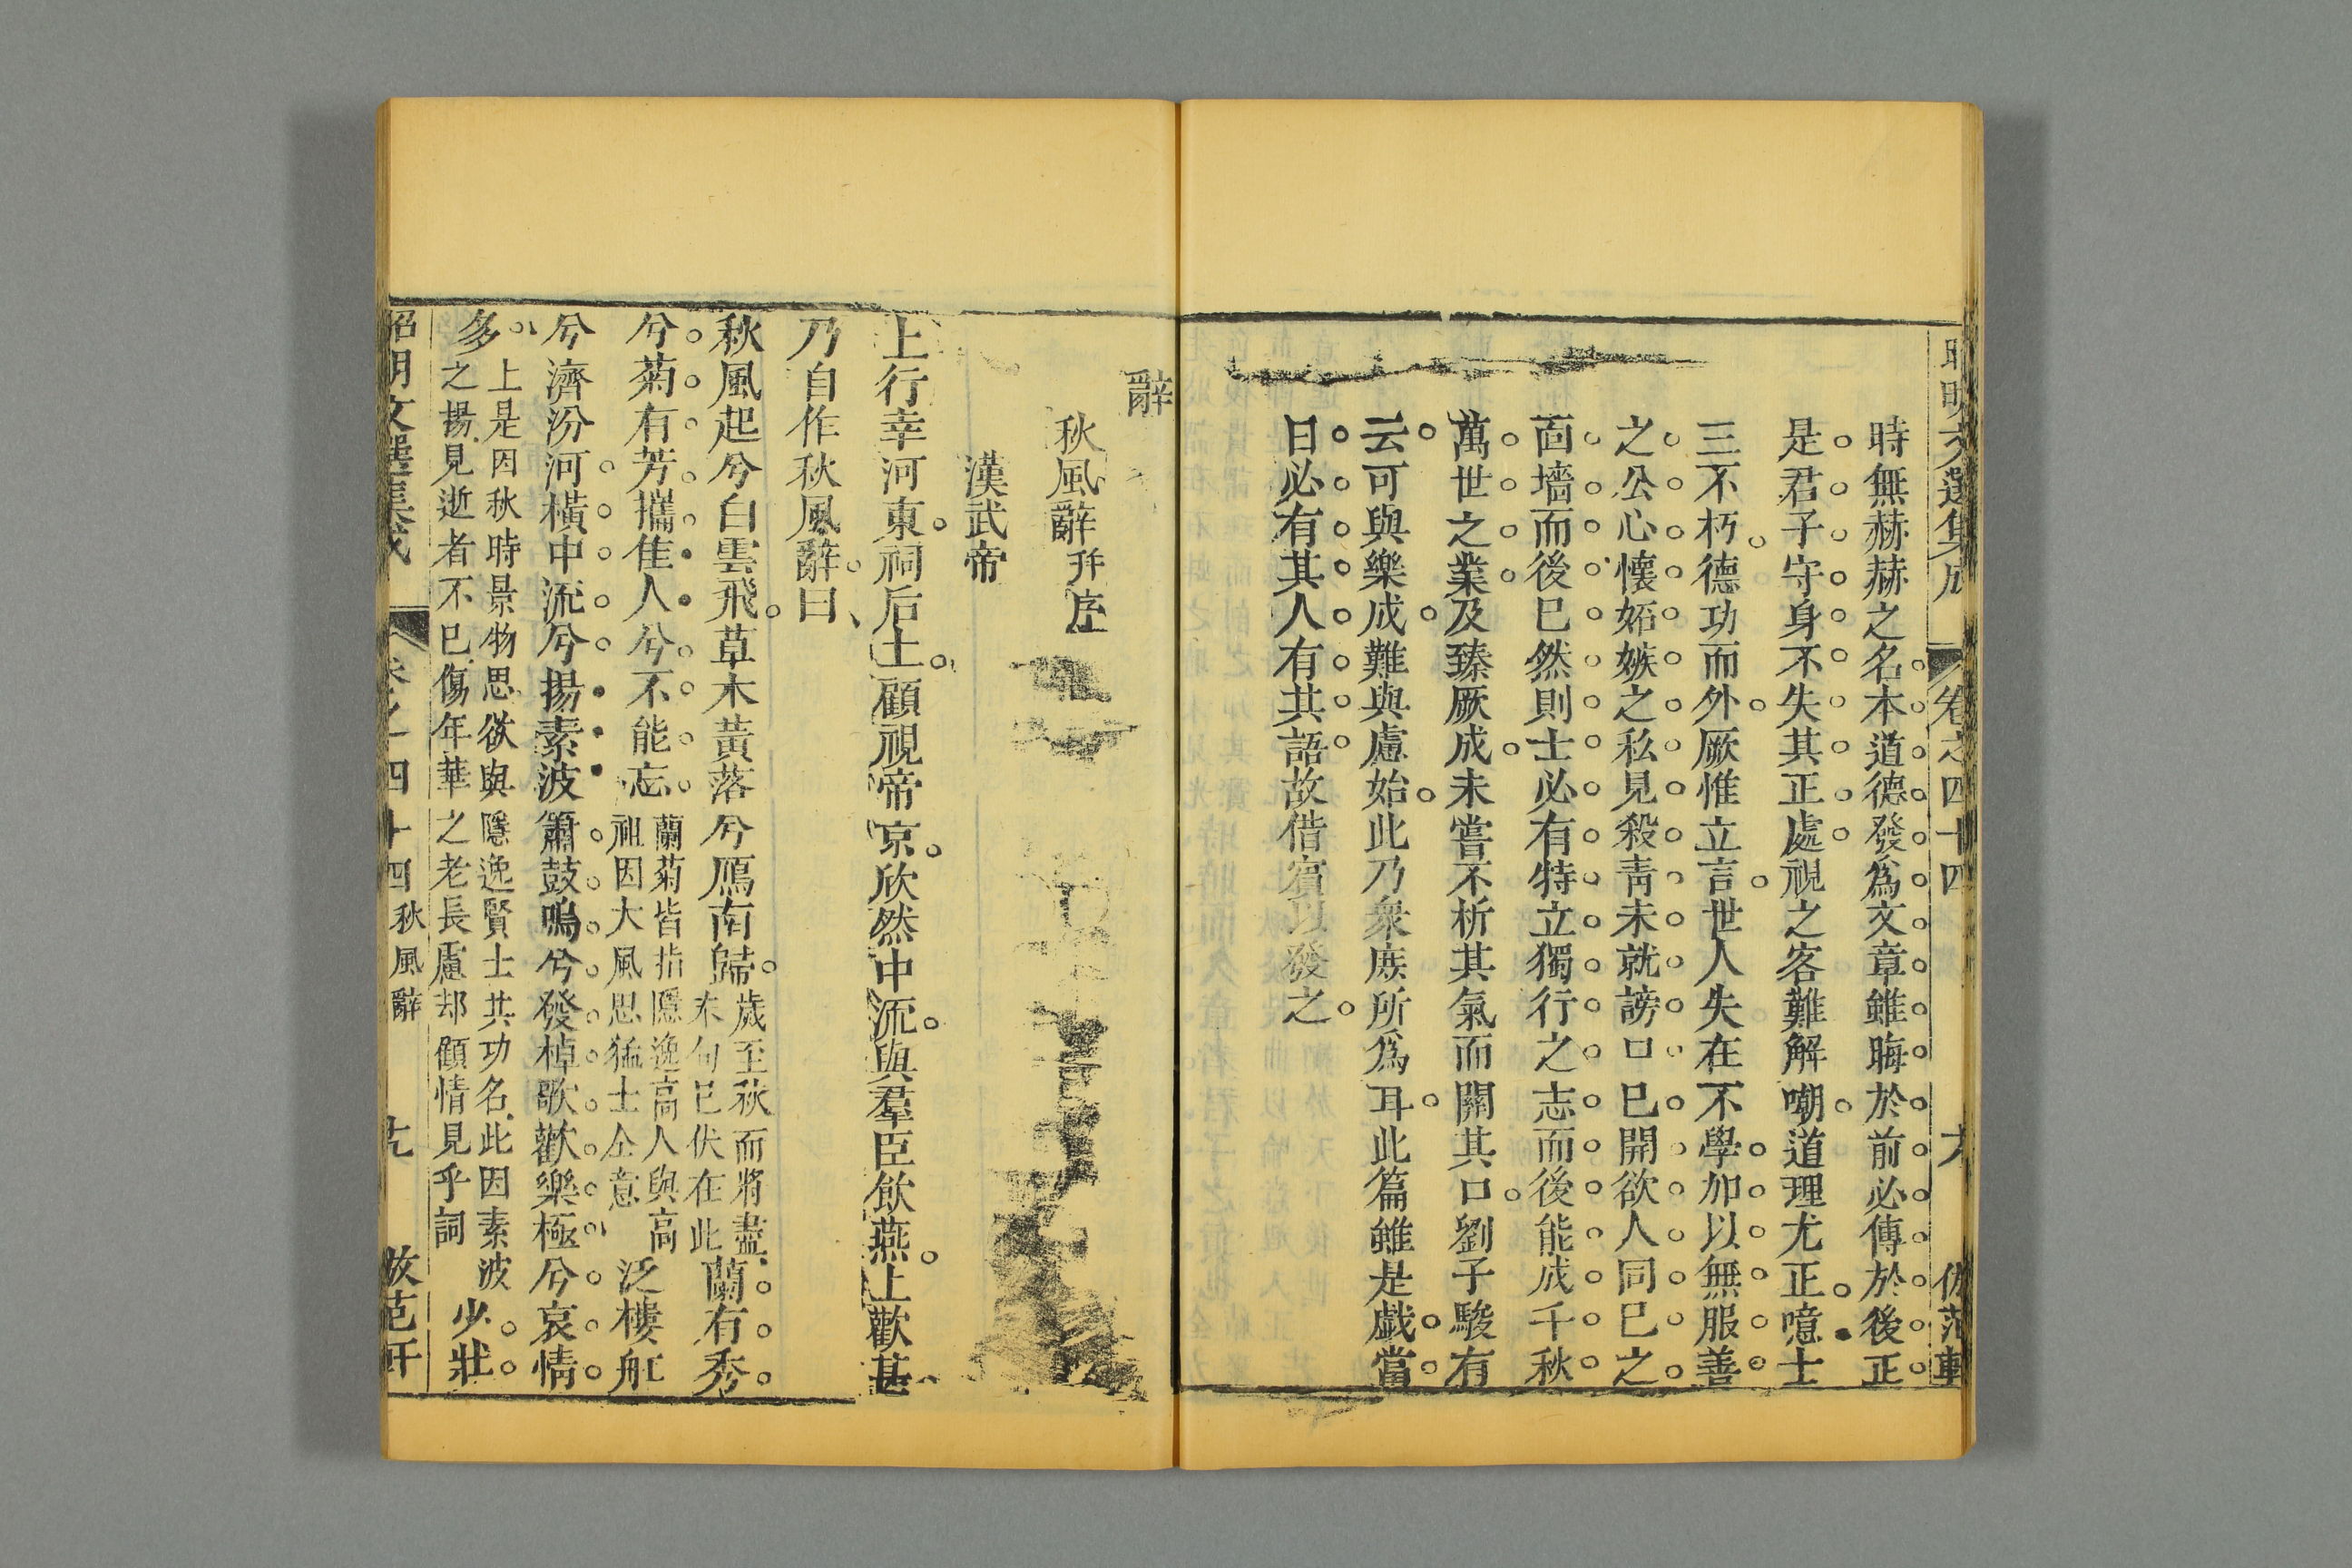 昭明文選集成 卷之四十四
時無赫赫之名本道德發爲文章雖晦於前必傳於後正
是君子守身不失其正處視之客難解嘲道理尤正噫士
三不朽德功而外厥惟立言世人失在不學加以無服善
之公心懷妬嫉之私見殺靑未就謗口已開欲人同已之
面墻而後已然則士必有特立獨行之志而後能成千秋
萬世之業及臻厥成未嘗不析其氣而關其口劉子駿有
云可與樂成難與慮始此乃衆庶所爲耳此篇雖是戯當
日必有其人有其語故借賓以發之
辭
秋風辭并序
漢武帝
上行幸河東祠后土顧視帝京欣然中流與羣臣飲燕上歡甚
乃自作秋風辭曰
秋風起兮白雲飛草木黃落兮鴈南歸歲至秋而將盡末句已伏在此蘭有秀
兮菊有芳攜佳人兮不能忘蘭菊皆指隱逸高人與高祖因大風思猛士仝意泛樓舡
兮濟汾河橫中流兮揚素波簫鼓鳴兮發棹歌歡樂極兮哀情
多上是因秋時景物思欲與隱逸賢士共功名此因素波之揚見逝者不已傷年華之老長慮却顧情見乎詞少壯
昭明文選集成 卷之四十四 秋風辭